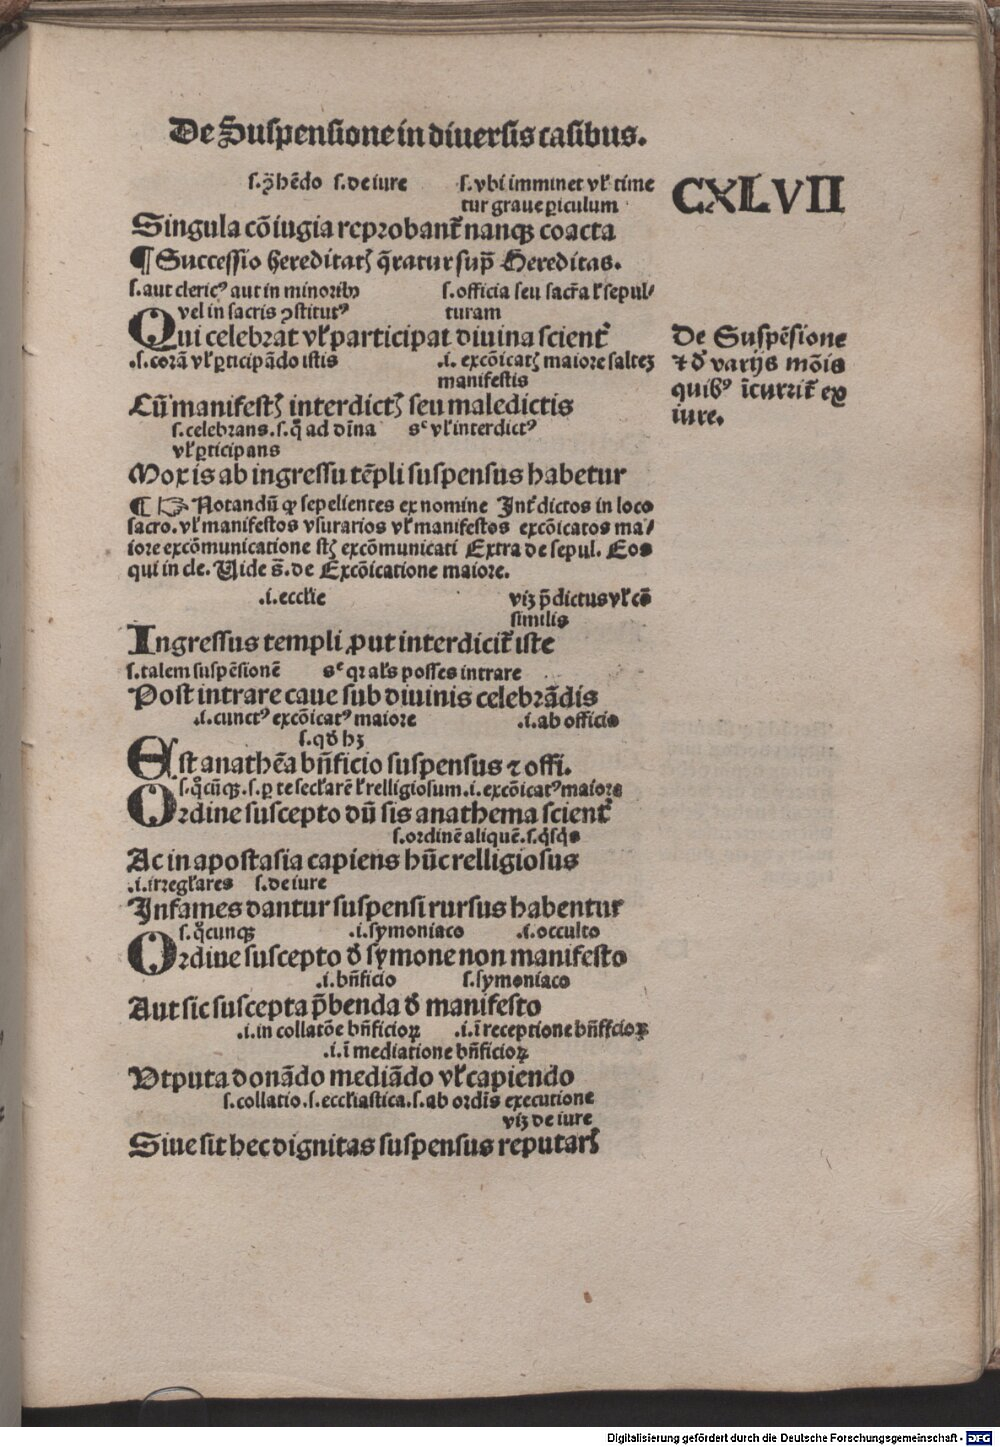 De Suspensione in diuersis casibus.
CXLVII
s.ꝓhēdo s.de iure s.vbi imminet vl̕ time
tur graue ꝑiculum
Singula cōiugia reprobant᷑ nanqꝫ coacta
¶ Successio hereditatꝭ q̄ratur sup̄ Hereditas.
s.aut cleric⁹ aut in minoribꝰ s.officia seu sacr̄a l̕ sepul⸗
vel in sacris ꝯstitut⁹ turam
Qui celebrat vl̕ participat diuina scient᷑
.s.corā vl̕ ꝑticipādo istis .i. excōicatꝭ maiore salteꝫ
manifestis
De Suspēsione
⁊ đ varijs mōis
quib⁹ īcurrit᷑ ex
iure.
Cū manifestꝭ interdictꝭ seu maledictis
s.celebrans.s.q̄ ad dīna sᶜ vl̕ interdict⁹
vl̕ ꝑticipans
Mox is ab ingressu tēpli suspensus habetur
¶ ☞ Notandū ꝙ sepelientes ex nomine Int᷑dictos in loco
sacro.vl̕ manifestos vsurarios vl̕ manifestos excōicatos ma⸗
iore excōmunicatione stꝭ excōmunicati Extra de sepul. Eos
qui in cle. Uide s̄.de Excōicatione maiore.
.i.eccl̕ie viꝫ p̄dictus vl̕ cō
similis
Ingressus templi ꝓut interdicit᷑ iste
s.talem suspēsionē sᶜ qꝛ al̕s posses intrare
Post intrare caue sub diuinis celebrādis
.i.cunct⁹ excōicat⁹ maiore .i.ab officio
s.qđ hꝫ
Est anathēa bn̄ficio suspensus ⁊ offi.
s.q̄cūqꝫ.s.ꝑ te secl̕arē l̕ relligiosum.i.excōicat⁹ maiore
Ordine suscepto dū sis anathema scient᷑
s.ordinē aliquē.s.q̇sq̇s
Ac in apostasia capiens hūc relligiosus
.i.irregl̕ares s.de iure
Infames dantur suspensi rursus habentur
s.q̄cunqꝫ .i.symoniaco .i.occulto
Ordine suscepto đ symone non manifesto
.i.bn̄ficio s.symoniaco
Aut sic suscepta p̄benda đ manifesto
.i.in collatōe bn̄ficioꝝ .i.ī receptione bn̄ffcioꝝ
.i.ī mediatione bn̄ficioꝝ
Vtputa donādo mediādo vl̕ capiendo
s.collatio.s.eccl̕iastica.s.ab ordīs executione
viꝫ de iure
Siue sit hec dignitas suspensus reputarꝭ
Digitalisierung gefördert durch die Deutsche Forschungsgemeinschaft - DFG